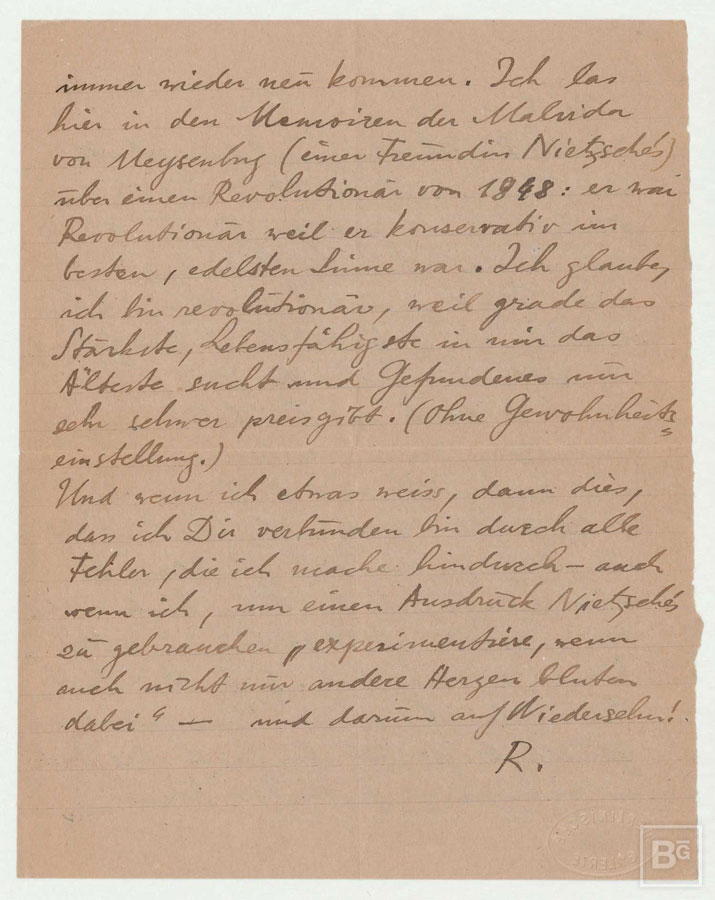 immer wieder neu kommen. Ich las
hier in den Memoiren der Malvida
von Meysenbug (einer Freundin Nietzsches)
über einen Revolutionär von 1848: er war
Revolutionär weil er konservativ im
besten, edelsten Sinne war. Ich glaube,
ich bin revolutionär, weil grade das
Stärkste, Lebensfähigste in mir das
Älteste sucht und Gefundenes nur
sehr schwer preisgibt. (Ohne Gewohnheits=
einstellung.)
Und wenn ich etwas weiss, dann dies,
dass ich Dir verbunden bin durch alle
Fehler, die ich mache hindurch – auch
wenn ich, um einen Ausdruck Nietzsches
zu gebrauchen „experimentiere, wenn
auch nicht nur andere Herzen bluten
dabei“ — und darum auf Wiedersehn!
R.
BG